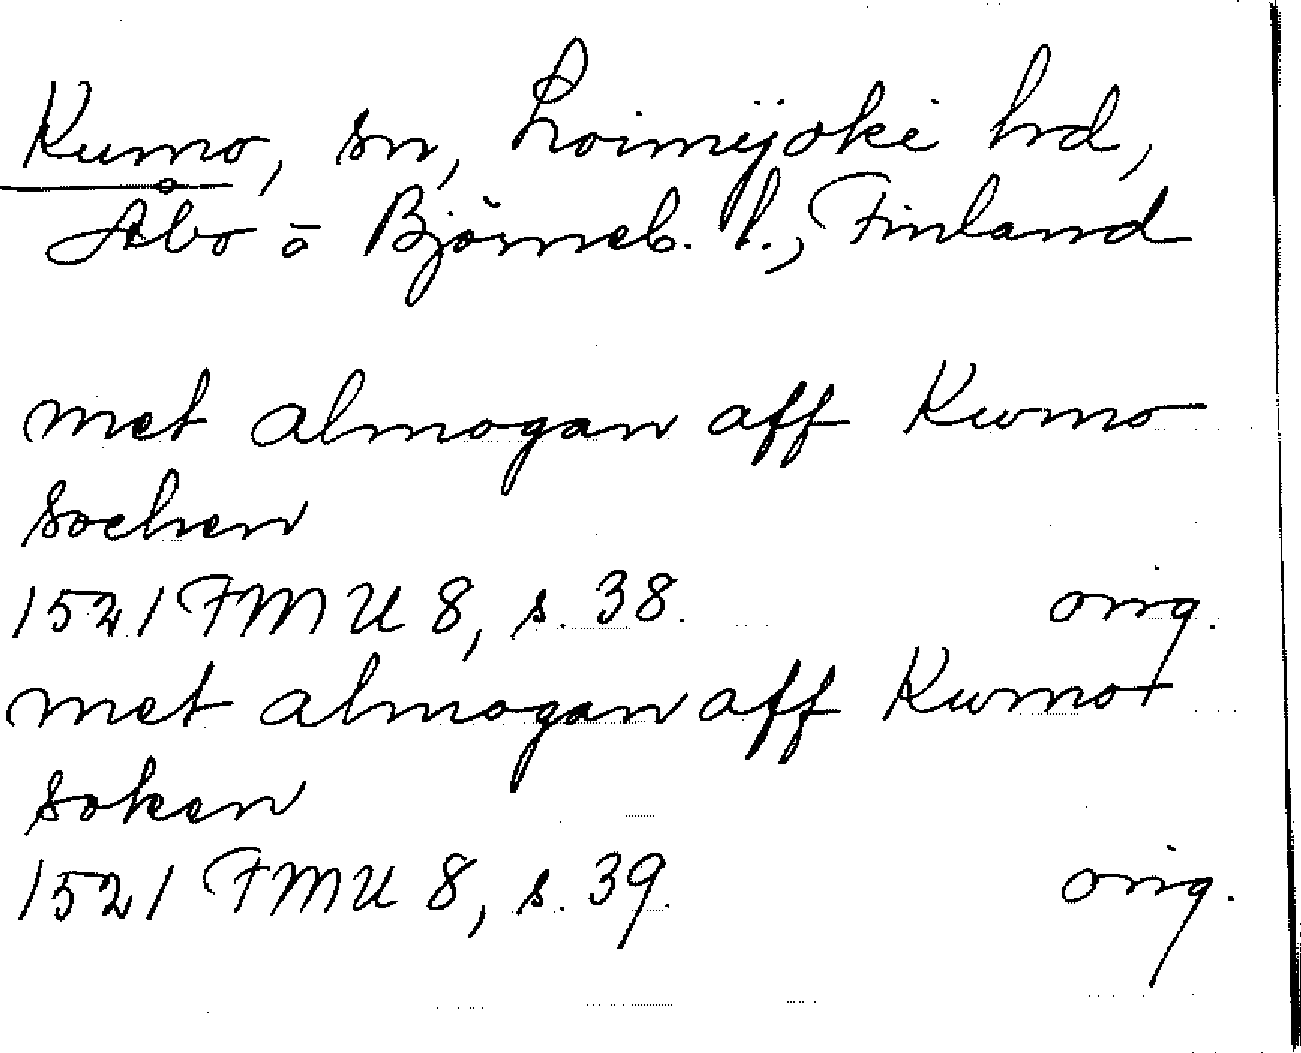 Kumo, sn, Loimijoki hrd,
Åbo o Björneb. l., Finland
met almogan aff Kwmo
sochen
1521 FMU 8, s. 38. orig.
met almogan aff Kwmo
soken
1521 FMU 8, s. 39. orig.